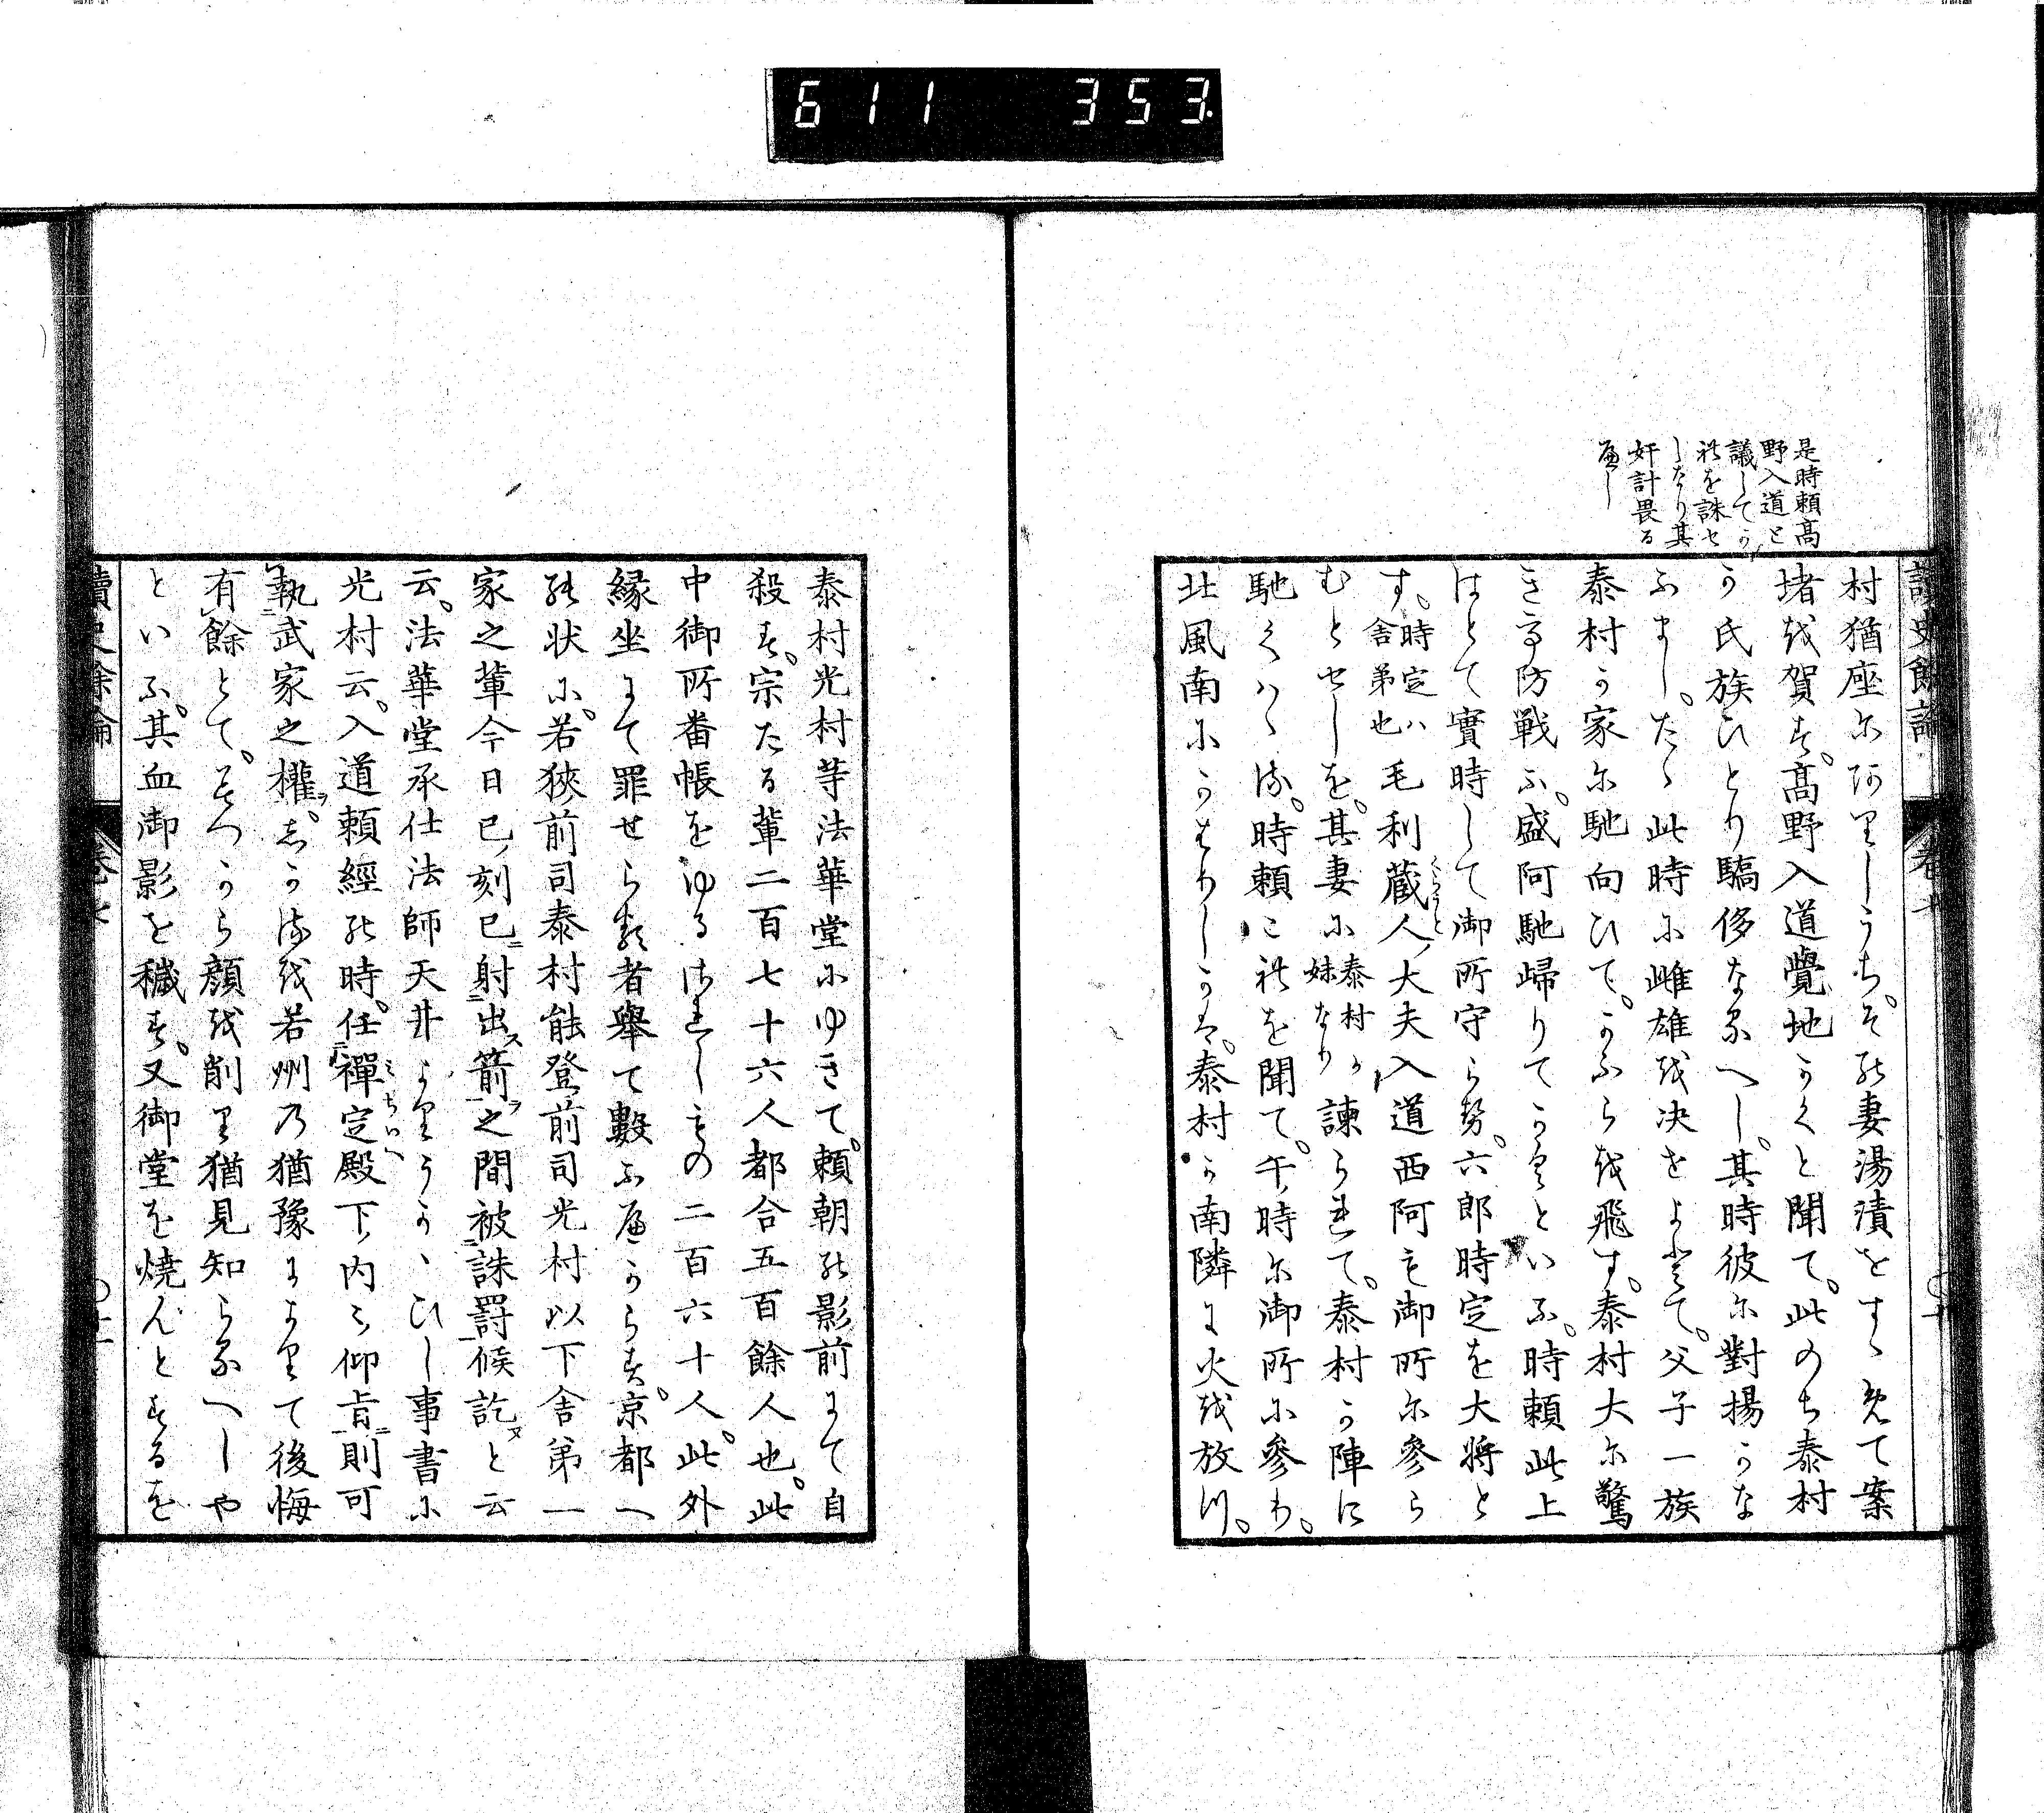 611 353
是時頼高
野入道と
議してか
れを誅せ
しなり其
奸計畏る
へし
讀史餘論 巻
村猶座にありしうち。その妻湯漬をすゝめて案
堵を賀す。高野入道覺地かくと聞て。此のち泰村
か氏族ひとり驕侈なるへし。其時彼に對揚かな
ふまし。たゝ此時に雌雄を决せよとて。父子一族
泰村か家に馳向ひて。かふらを飛す。泰村大に驚
きて防戦ふ。盛阿馳歸りてかくといふ。時頼此上
はとて實時して御所守らす。六郎時定を大将と
す。時定ハ舎弟也毛利蔵人大夫入道西阿も御所に參ら
むとせしを。其妻に泰村か妹なり諫られて。泰村か陣に
馳くハゝる。時頼これを聞て。午時に御所に參り。
北風南にかはりしかは。泰村か南隣に火を放つ。
泰村光村等法華堂にゆきて。頼朝の影前にて自
殺す。宗たる輩二百七十六人都合五百餘人也。此
中御所番帳をゆるされしもの二百六十人。此外
縁坐にて罪せらるゝ者舉て數ふへからす。京都へ
の状に。若狹前司泰村能登前司光村以下舎弟一
家之輩今日巳ノ刻已ニ射出スヲ箭之間被誅罸候訖ヌと云
云。法華堂承仕法師天井よりうかゝひし事書に
光村云。入道頼經の時。任禪定殿下ノ内々仰旨則可
執武家之權ヲ。しかるを若州乃猶豫によりて後悔
有餘とて。みつから顔を削り猶見知らるへしや
といふ。其血御影を穢す。又御堂を焼んとするを
讀史餘論 巻